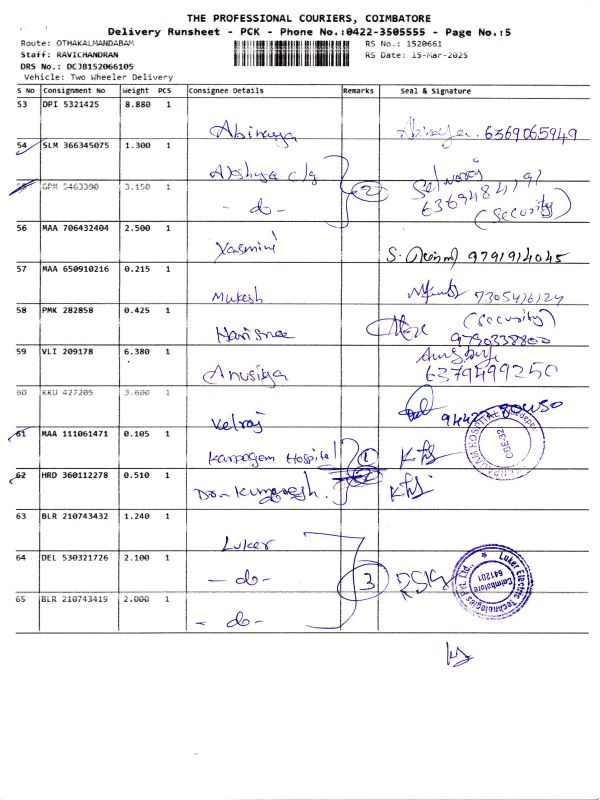 THE PROFESSIONAL COURIERS, COIMBATORE
Delivery Runsheet - PCK - Phone No.:0422-3505555 - Page No.:5
Route: OTHAKALMANDABAM RS No.: 1520661
Staff: RAVICHANDRAN RS Date: 15-Mar-2025
DRS No.: DCJB152066105
Vehicle: Two Wheeler Delivery
S No Consignment No Weight PCS Consignee Details Remarks Seal & Signature
53 DPI 5321425 8.880 1
Abinaya 6369065949
54 SLM 366345075 1.300 1
Akshya c/g
GPM 5463390 3.150 1 2 Selvaraj
- do - (Security)
56 MAA 706432404 2.500 1
Yasmini 9791914045
57 MAA 650910216 0.215 1
Mukesh
58 PMK 282858 0.425 1 (Security)
Harisree
59 VLI 209178 6.380 1
Anusiya 6379499250
60 KKU 427205 3.600 1
Kelraj
61 MAA 111061471 0.105 1
Karpagam Hospital 1
62 HRD 360112278 0.510 1
Dr. Kumaresh
63 BLR 210743432 1.240 1
Luker
64 DEL 530321726 2.100 1
- do - 3
65 BLR 210743419 2.000 1
- do -
Luker Electric Technologies Pvt. Ltd.,
Coimbatore
641201